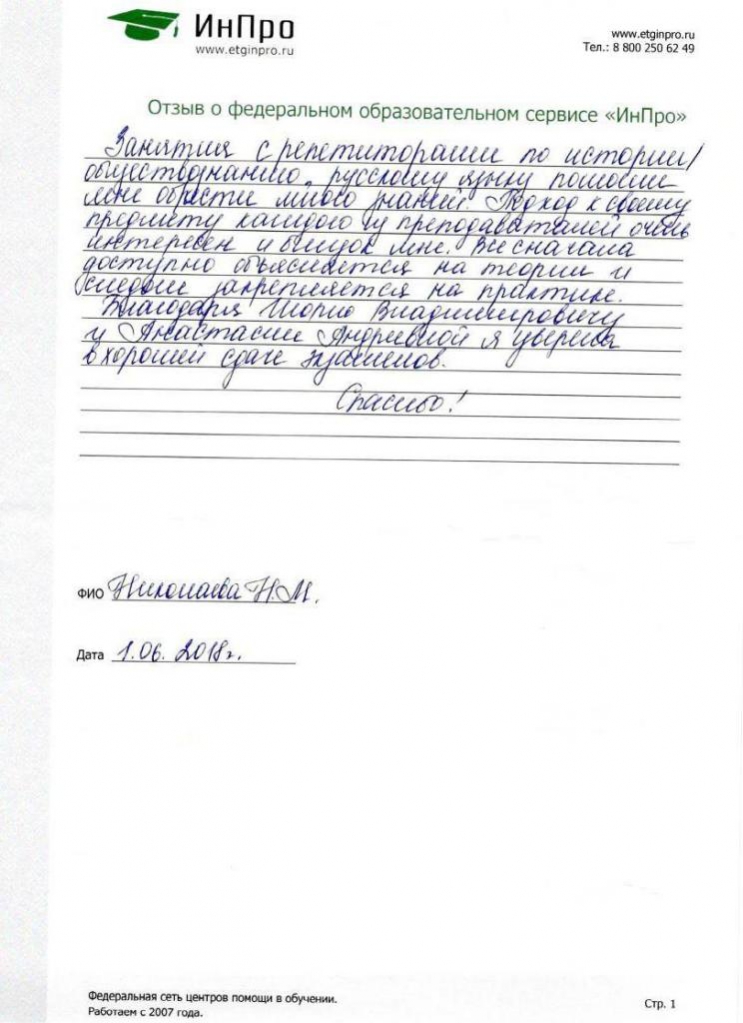 ИнПро
www.etginpro.ru
www.etginpro.ru
Тел.: 8 800 250 62 49
Отзыв о федеральном образовательном сервисе «ИнПро»
Занятия с репетиторами по истории/
обществознанию, русскому языку помогли
мне обрести много знаний. Подход к своему
предмету каждого из преподавателей очень
интересен и близок мне. Все сначала
доступно объясняется на теории и
следом закрепляется на практике.
Благодаря Юрию Владимировичу
и Анастасии Андреевной я уверена
в хорошей сдаче экзаменов.
Спасибо!
ФИО Николаева Н.М.
Дата 1.06. 2018г.
Федеральная сеть центров помощи в обучении.
Работаем с 2007 года.
Стр. 1